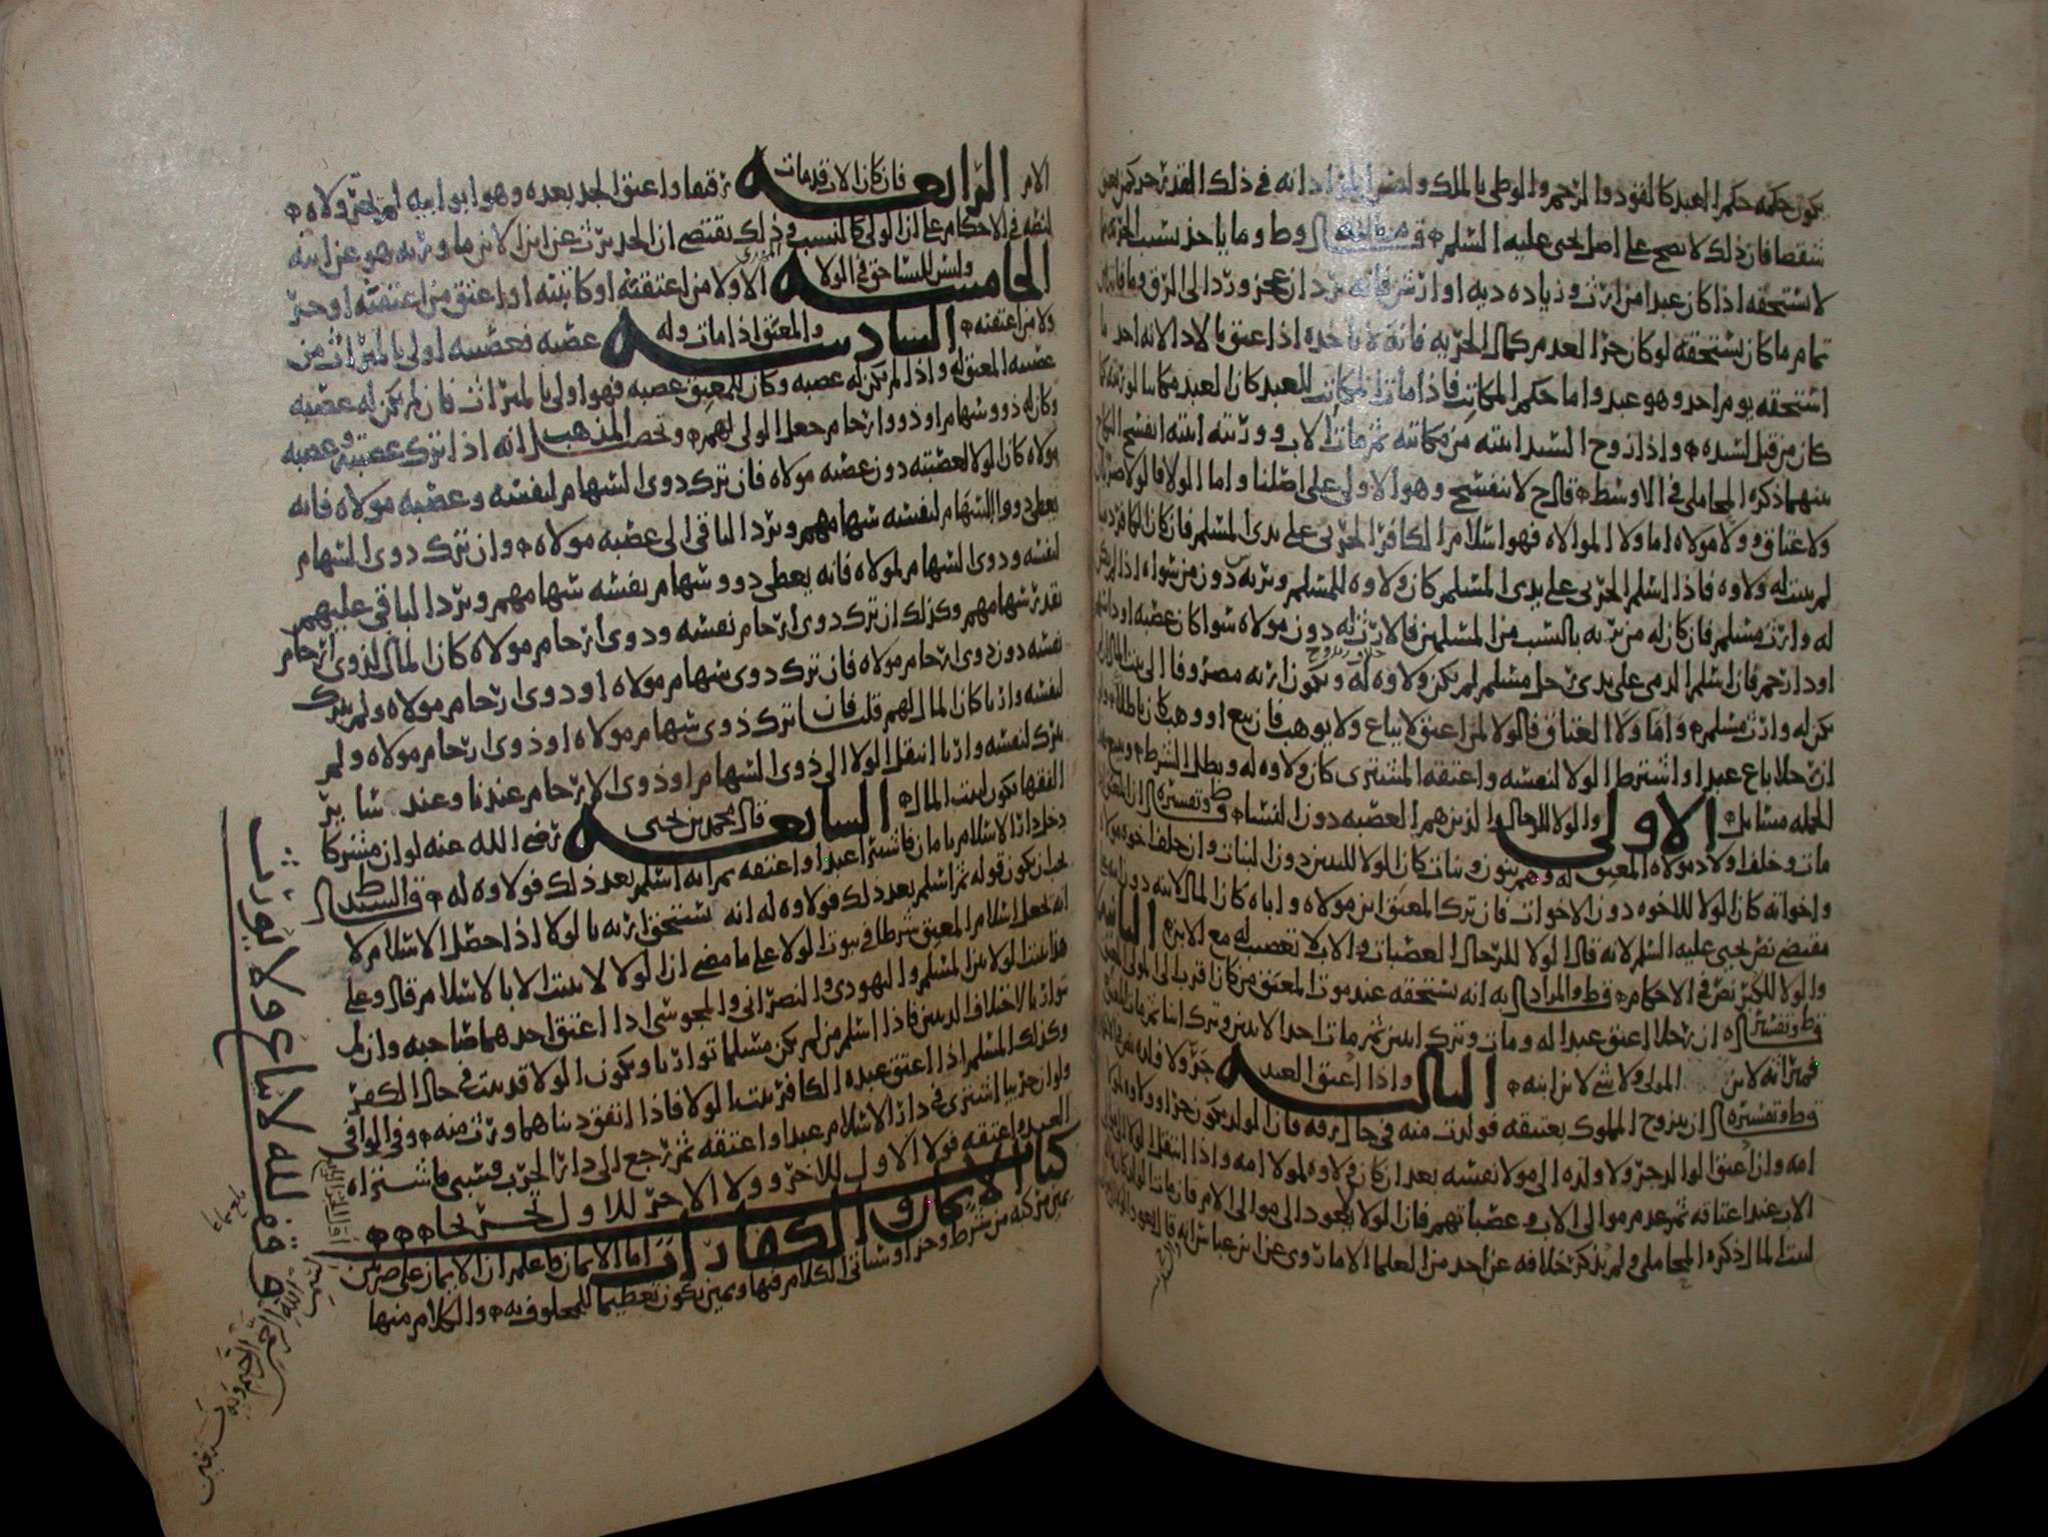 يكون حكمه حكم العبد كالقود والرجم والوطي بالملك وليس المراد انه في ذلك القدر حر كمن يعتق
شقصا فان ذلك لا يصح على اصل يحيى عليه السلم وما ياخذ بسبب الحرية
لا يستحقه اذا كان عبدا من ارث وزياده ديه او ارش فانه يرد ان عجز ورد الى الرق
تمام ما كان يستحقه لو كان حرا لعدم كمال الحريه فانه لا ياخذه اذا عتق بالادا لانه احد ما
استحقه يوم احد وهو عبد واما حكم المكاتب فاذا مات المكاتب للعبد كان العبد مكاتبا لورثته كما
كان من قبل لسيده واذا زوج السيد ابنته من مكاتبه ثم مات الاب وورثته ابنته انفسخ النكاح
بينهما ذكره المحاملي في الاوسط قال ح لا ينفسخ وهو الاولى على اصلنا واما الولا فالولا ضربان
ولا عتاق وولا موالاه اما ولا الموالاه فهو اسلام الكافر الحربي على يدي المسلم فان كان الكافر ذميا
لم يثبت له ولاوه فاذا اسلم الحربي على يدي المسلم كان ولاوه للمسلم ويرثه دون من سواه اذا لم يكن
له وارث مسلم فان كان له من يرثه بالنسب من المسلمين فالارث له دون مولاه سوا كان عصبه او ذا سهم
او ذا رحم فان اسلم الذمي على يدي رجل مسلم لم يكن ولاوه له ويكون ارثه مصروفا الى بيت المال ان لم
يكن له وارث مسلم واما ولا العتاق فالولا لمن اعتق لا يباع ولا يوهب فان بيع او وهب كان باطلا
ان رجلا باع عبدا واشترط الولا لنفسه واعتقه المشتري كان ولاوه له وبطل الشرط
الجمله مسايل الاولى والولا للرجال الذين هم العصبه دون النسا
مات وخلف اولاد مولاه المعتق له وهم بنون وبنات كان الولا للبنين دون البنات وان خلف اخوه مولاه
واخواته كان الولا للاخوه دون الاخوات فان ترك المعتق ابن مولاه واباه كان المال لابنه دون ابيه
مقتضى نص يحيى عليه السلم لانه قال الولا للرجال العصبات والاب لا تعصيب له مع الابن الثانيه
والولا للكبر نص في الاحكام والمراد به انه يستحقه عند موت المعتق من كان اقرب الى المولى المعتق
وتفسيره ان رجلا اعتق عبدا له ومات وترك ابنين ثم مات احد الابنين وترك ابنا ثم مات المعتق
فميراثه لابن المولى ولا شي لابن ابنه الثالثه واذا اعتق العبد جر ولا ولده
وتفسيره ان يتزوج المملوك بعتيقه فولدت منه في حال رقه فان الولد يكون حرا وولاوه لمولى
امه وان اعتق الوالد جر ولا ولده الى مولا نفسه بعد ان كان ولاوه لمولا امه واذا انتقل الولا الى مولى
الاب عند اعتاقه ثم عدم موالى الاب وعصباتهم فان الولا لا يعود الى موالى الام فان مات الولد كان
لبيت المال ذكره المحاملي ولم يذكر خلافه عن احد من العلما الا ما روي عن ابن عباس انه قال يعود الى
الام الرابعه فان كان الاب قد مات رقيقا واعتق الجد بعده وهو ابو ابيه لم يجر ولاه
لنصه في الاحكام على ان الولى كالنسب وذلك يقتضي ان الجد يرث عن ابن الابن ما ورثه هو عن ابنه
الخامسه وليس للنسا حق في الولا الا ولا من اعتقته او كاتبته او اعتق من اعتقته او جر
ولا من اعتقته السادسه والمعتق اذا مات وله عصبه فعصبته اولى بالميراث من
عصبه المعتق له واذا لم يكن له عصبه وكان للمعتق عصبه فهو اولى بالميراث فان لم يكن له عصبه
وكان له ذوو سهام او ذوو ارحام جعل المولى لهم وتحصيل المذهب انه اذا ترك عصبته وعصبه
مولاه كان الولا لعصبته دون عصبه مولاه فان ترك ذوى السهام لنفسه وعصبه مولاه فانه
يعطى ذوو السهام لنفسه سهامهم ويرد الباقي الى عصبه مولاه وان ترك ذوى السهام
لنفسه وذوى السهام لمولاه فانه يعطى ذوو سهام نفسه سهامهم ويرد الباقي عليهم
بقدر سهامهم وكذلك ان ترك ذوى ارحام نفسه وذوى ارحام مولاه كان المال لذوى ارحام
نفسه دون ذوى ارحام مولاه فان ترك ذوى سهام مولاه او ذوى ارحام مولاه ولم يترك
لنفسه وارثا كان المال لهم قلت فان ترك ذوى سهام مولاه او ذوى ارحام مولاه ولم
يترك لنفسه وارثا انتقل الولا الى ذوى السهام او ذوى الارحام عندنا وعند سائر
الفقها يكون لبيت المال السابعه قال محمد بن يحيى رضي الله عنه لو ان مشركا
دخل دار الاسلام بامان فاشترا عبدا واعتقه ثم انه اسلم بعد ذلك فولاوه له قال السيد ط
يجب ان يكون قوله ثم اسلم بعد ذلك فولاوه له انه يستحق ارثه بالولا اذا حصل الاسلام لا
انه يجعل اسلام المعتق شرطا في ثبوت الولا على ما مضى ان الولا لا يثبت الا بالاسلام قال وعلى
هذا يثبت الولا بين المسلم واليهودي والنصراني والمجوسي اذا اعتق احدهما صاحبه وان لم
يتوارثا لاختلاف الدينين فاذا اسلم من لم يكن مسلما توارثا ويكون الولا قد يثبت في حال الكفر
وكذلك المسلم اذا اعتق عبده الكافر يثبت الولا فاذا اتفق ديناهما ورث منه وفي الوافي
ولو ان حربيا اشترى في دار الاسلام عبدا واعتقه ثم رجع الى دار الحرب فسبي فاشتراه
العبد واعتقه فولا الاول للاخر وولا الاخر للاول
كتاب الايمان والكفارات اما الايمان فاعلم ان الايمان على ضربين
يمين مركبه من شرط وجزا وسياتي الكلام فيها ويمين يكون تعظيما للمحلوف به والكلام منها
وقف لله لا يباع ولا يورث
بلغ سماعا
بسم الله الرحمن الرحيم وبه نستعين